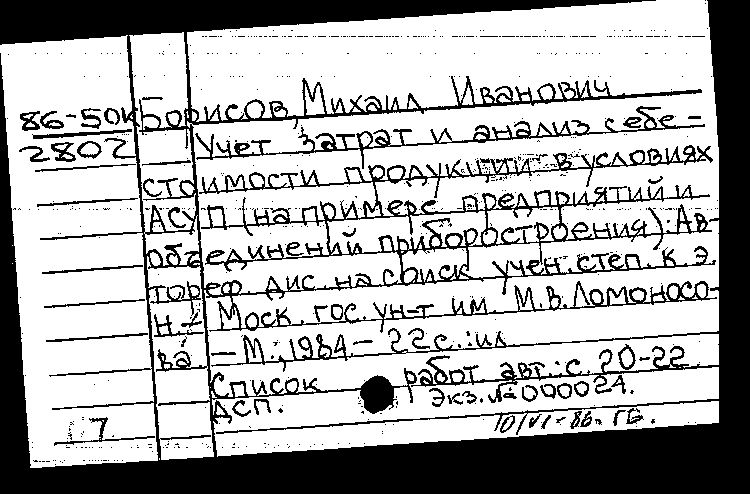 86-50к Борисов, Михаил Иванович.
2802 Учет затрат и анализ себе-
стоимости продукции в условиях
АСУП (на примере предприятий и
объединений приборостроения): Ав-
тореф. дис. на соиск. учен. степ. к. э.
н. - Моск. гос. ун-т им. М.В. Ломоносо-
ва. - М., 1984. - 22 с.: ил
Список работ авт.: с. 20-22.
ДСП. Экз. № 000024.
7 10/VI-86. ГБ.